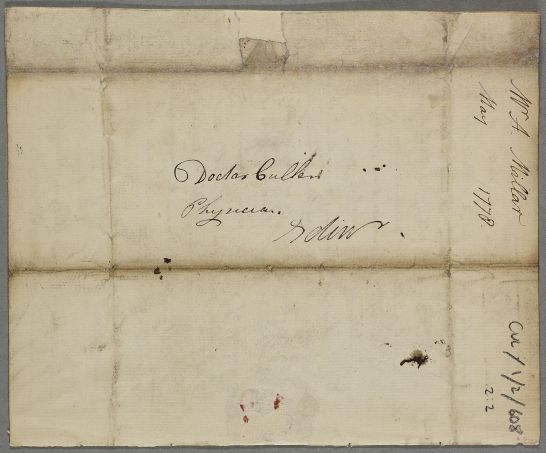 Doctor Cullen
Physician.
Edinr.
Mr A. Millar
May 1778.
CUL/1/2/608
2:2